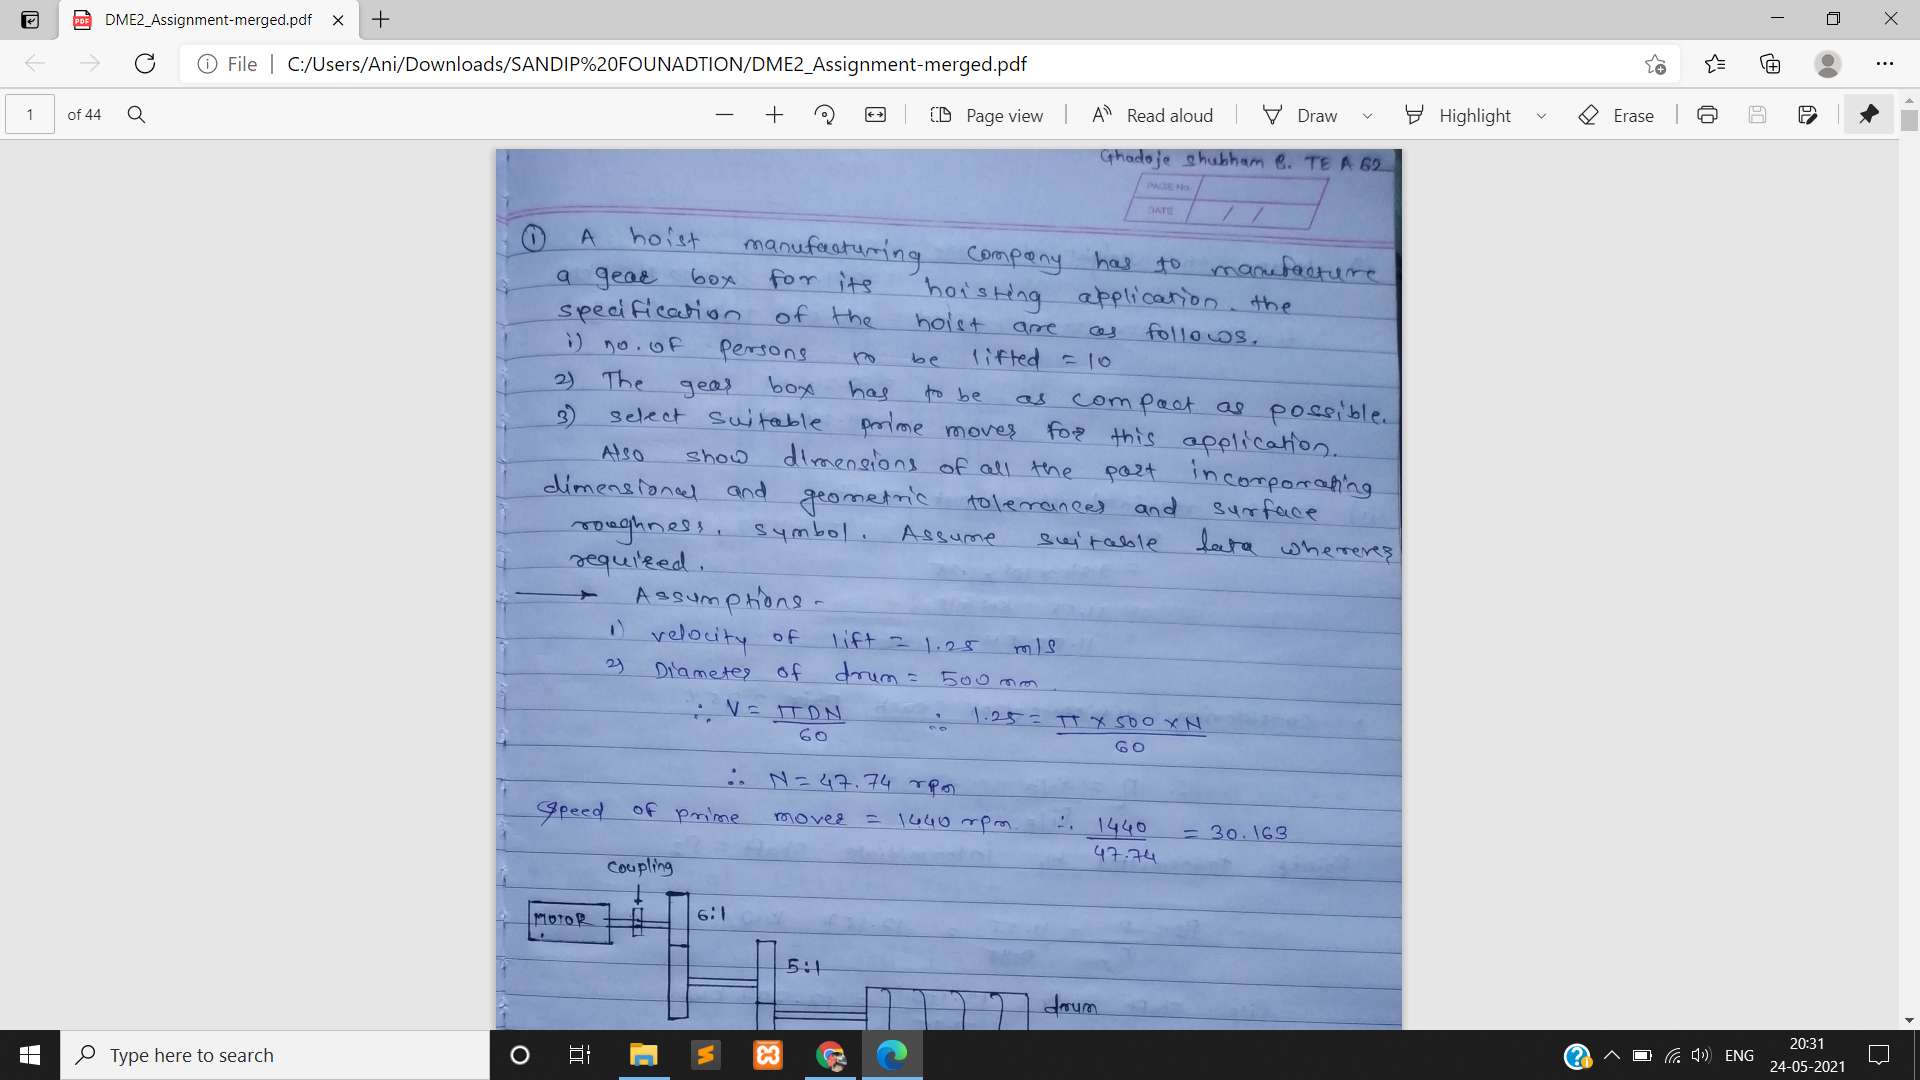 DME2_Assignment-merged.pdf
File | C:/Users/Ani/Downloads/SANDIP%20FOUNADTION/DME2_Assignment-merged.pdf
1 of 44 Page view Read aloud Draw Highlight Erase
Ghadoje Shubham B. TE A 62
PAGE No.
DATE / /
① A hoist manufacturing company has to manufacture
a gear box for its hoisting application. the
specification of the hoist are as follows.
i) no. of persons to be lifted = 10
2) The gear box has to be as compact as possible.
3) select suitable prime mover for this application.
Also show dimensions of all the part incorporating
dimensional and geometric tolerances and surface
roughness, symbol. Assume suitable data wherever
required.
→ Assumptions -
1) velocity of lift = 1.25 m/s
2) Diameter of drum = 500 mm
∴ V = πDN/60 ∴ 1.25 = π x 500 x N/60
∴ N = 47.74 rpm
Speed of prime mover = 1440 rpm ∴ 1440/47.74 = 30.163
coupling
MOTOR 6:1
5:1
drum
Type here to search
ENG
20:31
24-05-2021